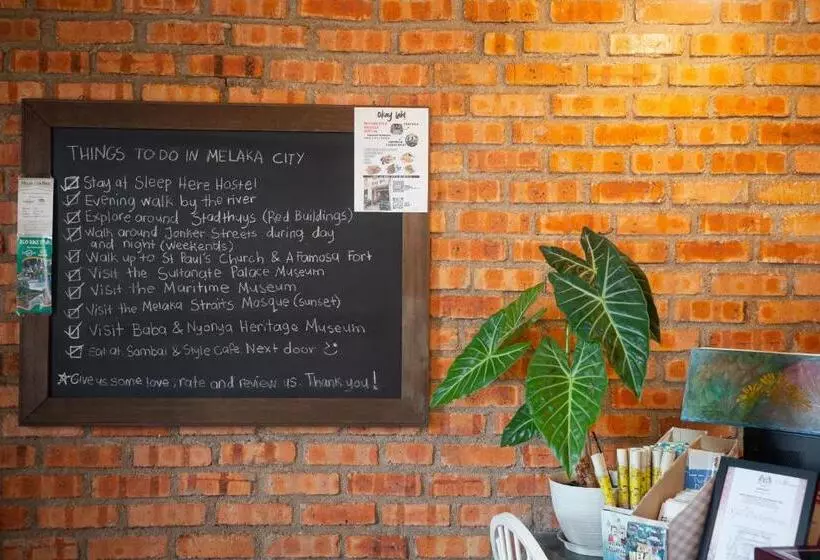 THINGS TO DO IN MELAKA CITY
Stay at Sleep Here Hostel
Evening walk by the river
Explore around Stadthuys (Red Buildings)
Walk around Jonker Streets during day
and night (weekends)
Walk up to St Paul's Church & A Famosa Fort
Visit the Sultanate Palace Museum
Visit the Maritime Museum
Visit the Melaka Straits Mosque (sunset)
Visit Baba & Nyonya Heritage Museum
Eat at Sambal & Style Cafe Next door
Give us some love, rate and review us. Thank you!